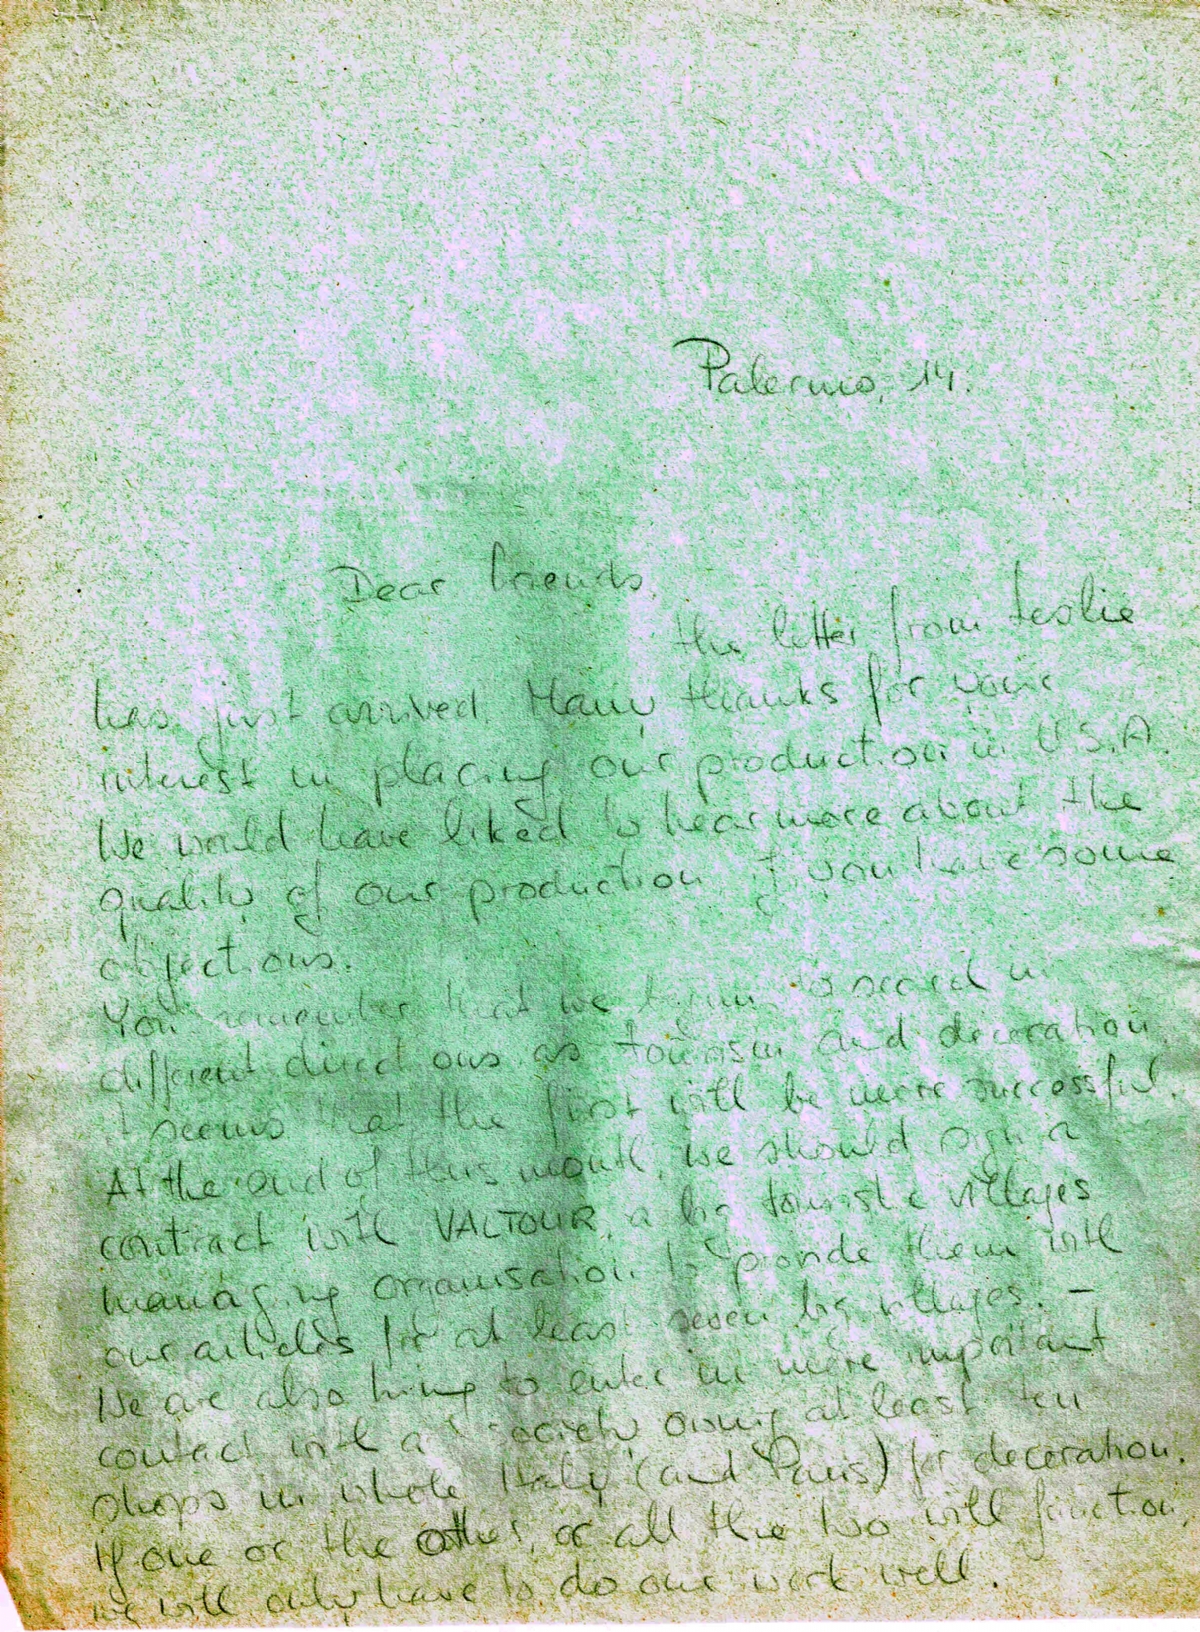 Palermo, 14.
Dear friends,
the letter from Leslie
has just arrived. Many thanks for your
interest in placing our production in U.S.A.
We would have liked to hear more about the
quality of our production, if you have some
objections.
You remember that we to in
different directions as tourism and decoration.
it seems that the first will be more successful.
At the end of this month, we should sign a
contract with VALTOUR, a big touristic villages
managing organisation to provide them with
our articles for at least seven big villages. —
We are also trying to enter in more important
contact with a society owning at least ten
shops in whole Italy (and Paris) for decoration.
If one or the other, or all the two will function,
we will only have to do our work well.